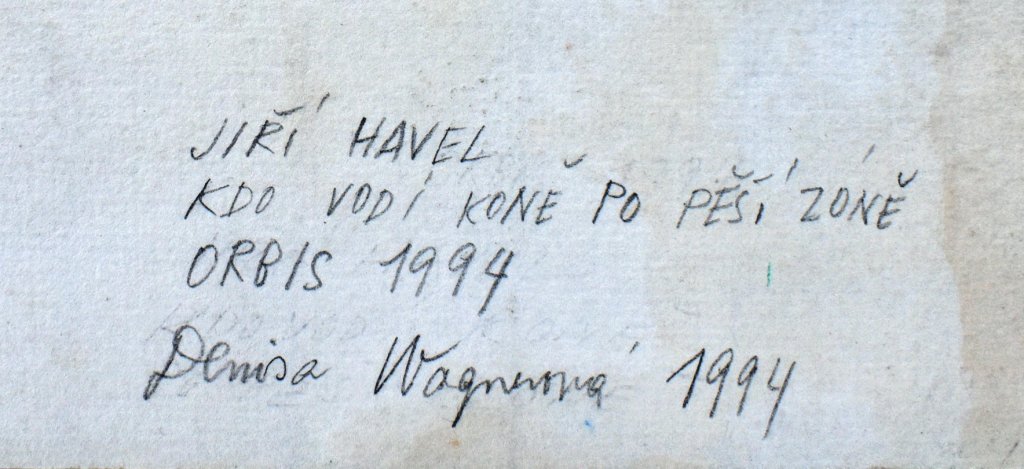 JIŘÍ HAVEL
KDO VODÍ KONĚ PO PĚŠÍ ZÓNĚ
ORBIS 1994
Denisa Wagnerová 1994